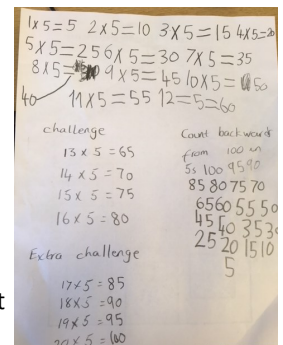 1x5=5 2x5=10 3x5=15 4x5=20
5x5=25 6x5=30 7x5=35
8x5= 9x5=45 10x5=50
40
11x5=55 12=5=60
challenge
13x5=65
14x5=70
15x5=75
16x5=80
Extra challenge
17x5=85
18x5=90
19x5=95
20x5=100
Count backwards
from 100 in
5s 100 95 90
85 80 75 70
65 60 55 50
45 40 35 30
25 20 15 10
5
t